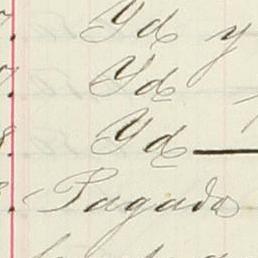 7. Yd y
7. Yd
8. Yd
8. Pagado